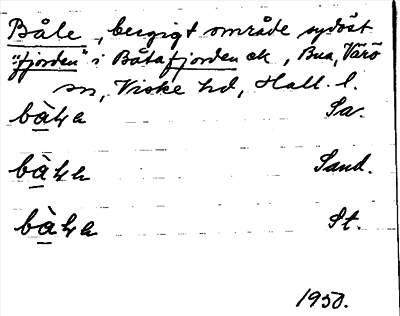 Båle, bergigt område sydöst
"fjorden" i Båtafjorden ek, Bua, Värö
sn, Viske hd, Hall. l.
Sa.
Sand.
St.
1950.